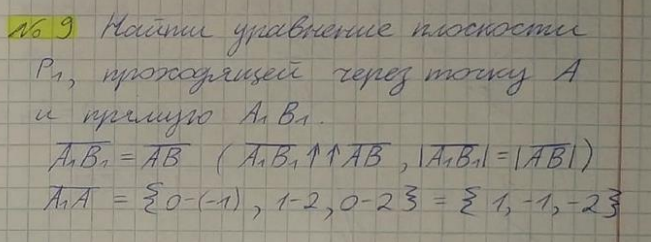 № 9 Найти уравнение плоскости
P₁, проходящей через точку A
и прямую A₁B₁.
A̅₁̅B̅₁̅ = A̅B̅ ( A̅₁̅B̅₁̅ ↑↑ A̅B̅ , |A̅₁̅B̅₁̅| = |A̅B̅| )
A̅₁̅A̅ = {0-(-1), 1-2, 0-2} = {1, -1, -2}